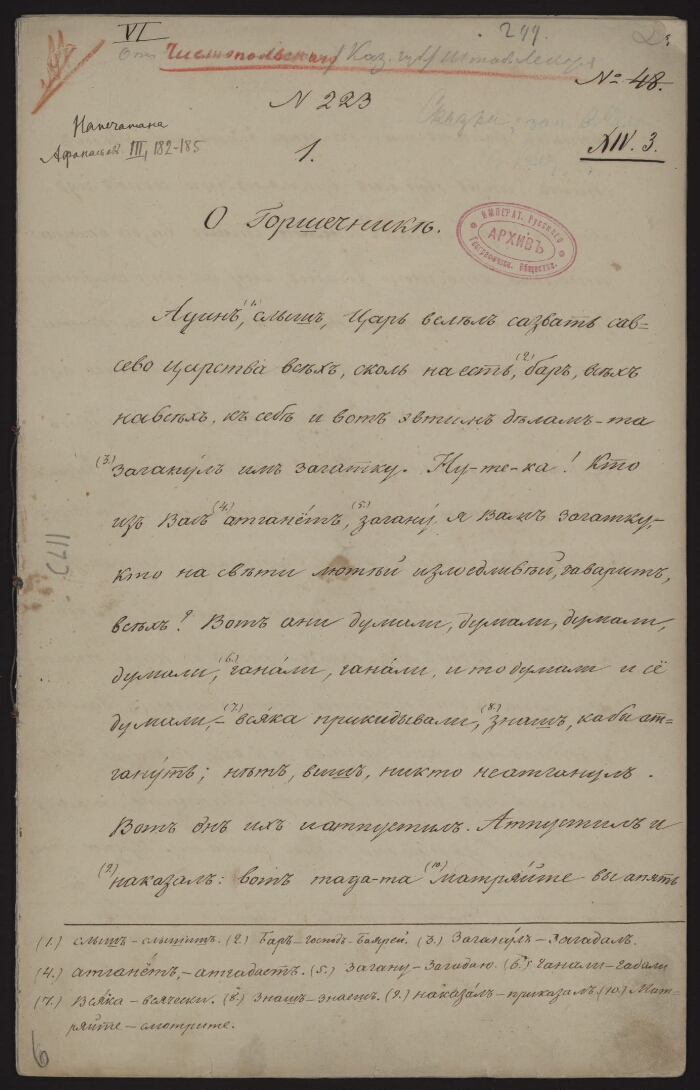 VI
299.
2
От Чистопольскаго Каз. губ.
№ 48.
N 223
Напечатана
Афанасьев. III, 182-185
XIV. 3.
1.
О Горшечникѣ.
ИМПЕРАТ. Русскаго
АРХИВЪ
Географическ. Общества.
Адинъ, (1.) слышъ, Царь велѣлъ сазвать сав=
сево царства всѣхъ, сколь на есть, (2.) баръ, всѣхъ
навсѣхъ, къ себѣ и вотъ эвтимъ дѣламъ-та
(3.) Заганулъ имъ загатку. Ну-те-ка! Кто
изъ Васъ (4.) атганётъ, (5.) загану́ я Вамъ загатку,-
кто на свѣти лютѣй излоедливѣй, гаваритъ,
всѣхъ? Вотъ ани думали, думали, думали,
думали, (6.) гана́ли, гана́ли, и то думали и сё
думали,- (7.) вся́ка прикидывали, (8.) знашъ, каби ат-
гану́ть; нѣтъ, вишъ, никто неатганулъ.
Вотъ онъ ихъ иатпустилъ. Атпустилъ и
(9.) наказалъ: вотъ тада-та (10.) матря́йте вы апять
(1.) слышъ-слышитъ. (2.) Баръ-господъ-Бояръй. (3.) Загану́лъ-Загадалъ.
(4.) атганётъ,-атгадаетъ. (5.) Загану-Загадаю. (6.) Ганали-гадали
(7.) Вся́ка-всячески. (8.) Знашъ-знаешъ. (9.) нака́залъ-приказалъ. (10.) Мат-
ря́йте-смотрите.
1173
6